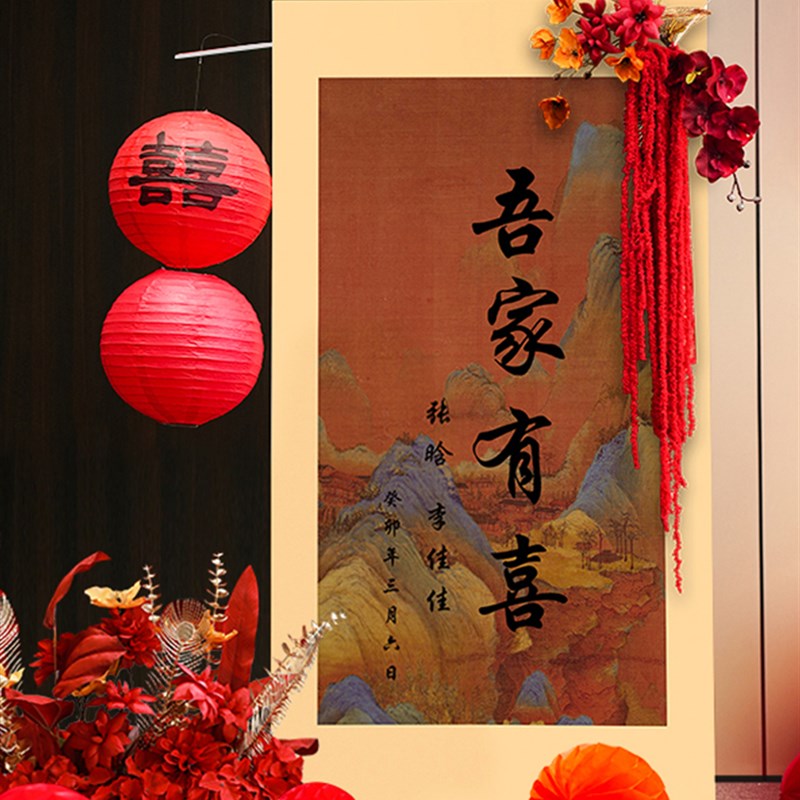 囍
吾家有喜
张晗 李佳佳
癸卯年三月六日